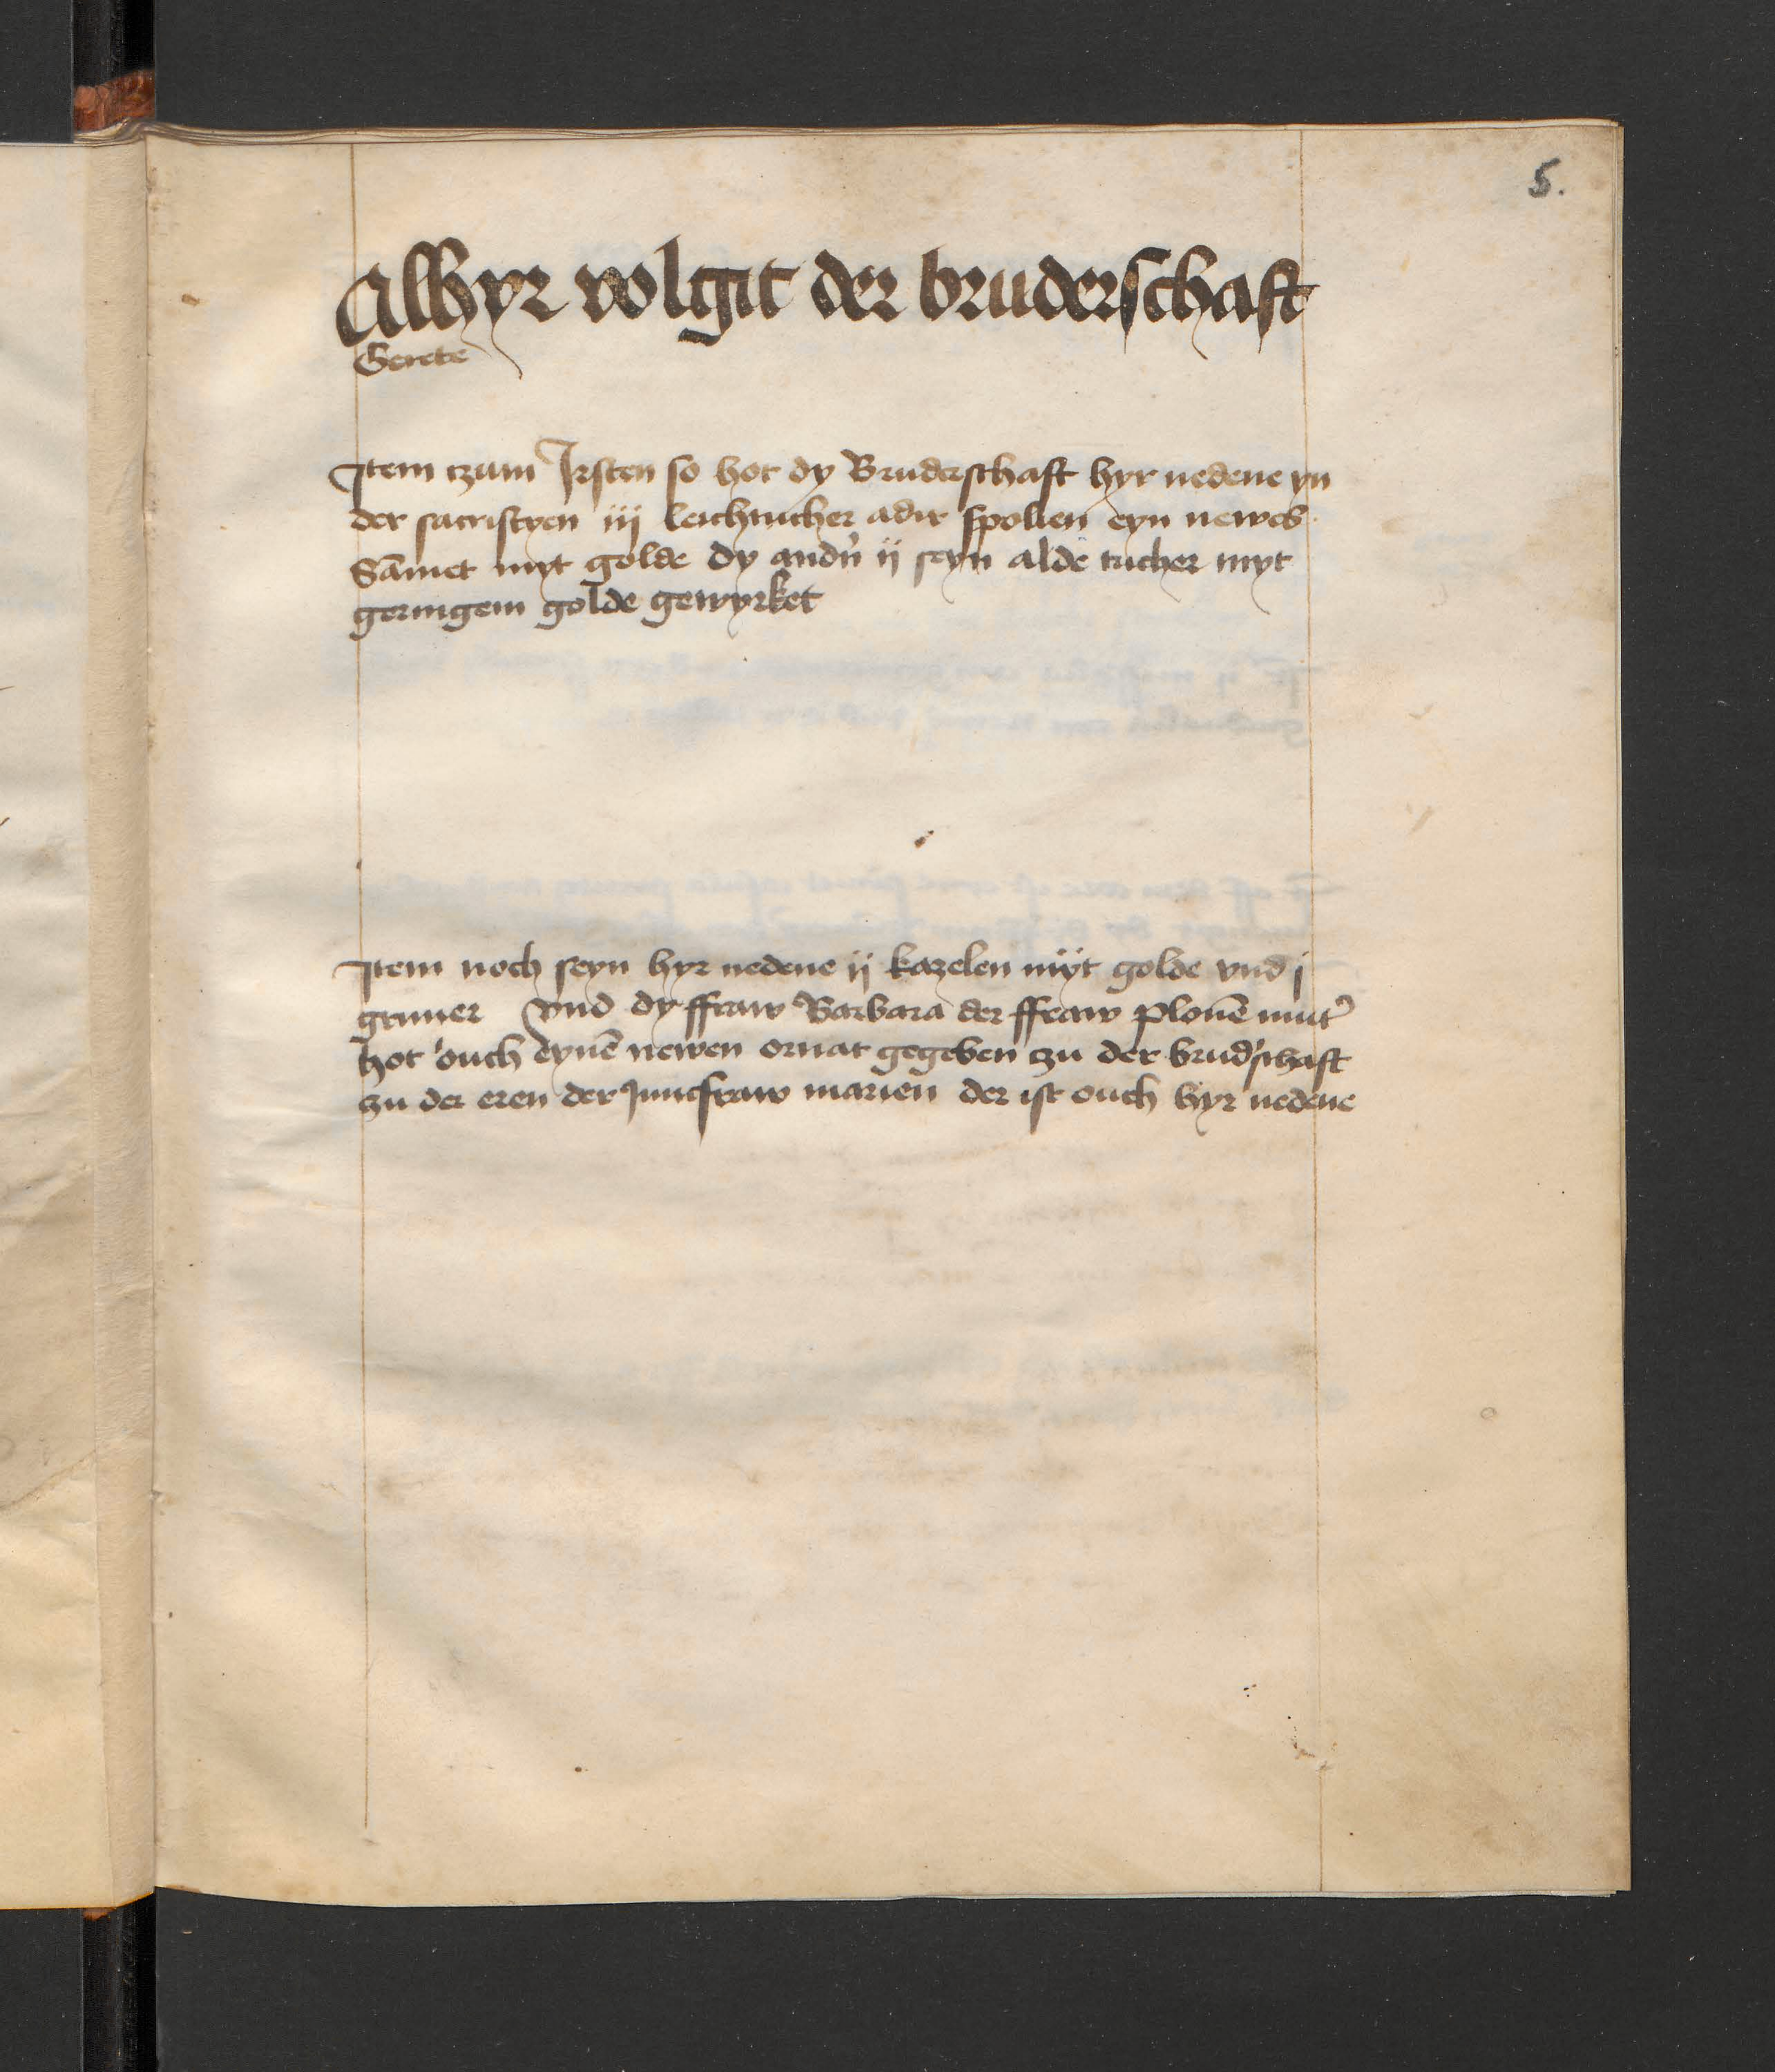 5.
Alhyr volgit der bruderschaft
Gerete
Item czum Irsten so hot dy Bruderschaft hyr nedene yn
der sacristyen iij leichtucher adir spolien eyn newes
Sam̄et myt golde dy andn̄ ij seyn alde tucher myt
geringem golde gewyrket
Item noch seyn hyr nedene ij kazelen myt golde vnd j
gruner Vnd dy ffraw Barbara der ffraw plonē mut'
hot ouch eynē newen ornat gegeben czu der brud'schaft
zu der eren der Juncfraw marien der ist ouch hyr nedene